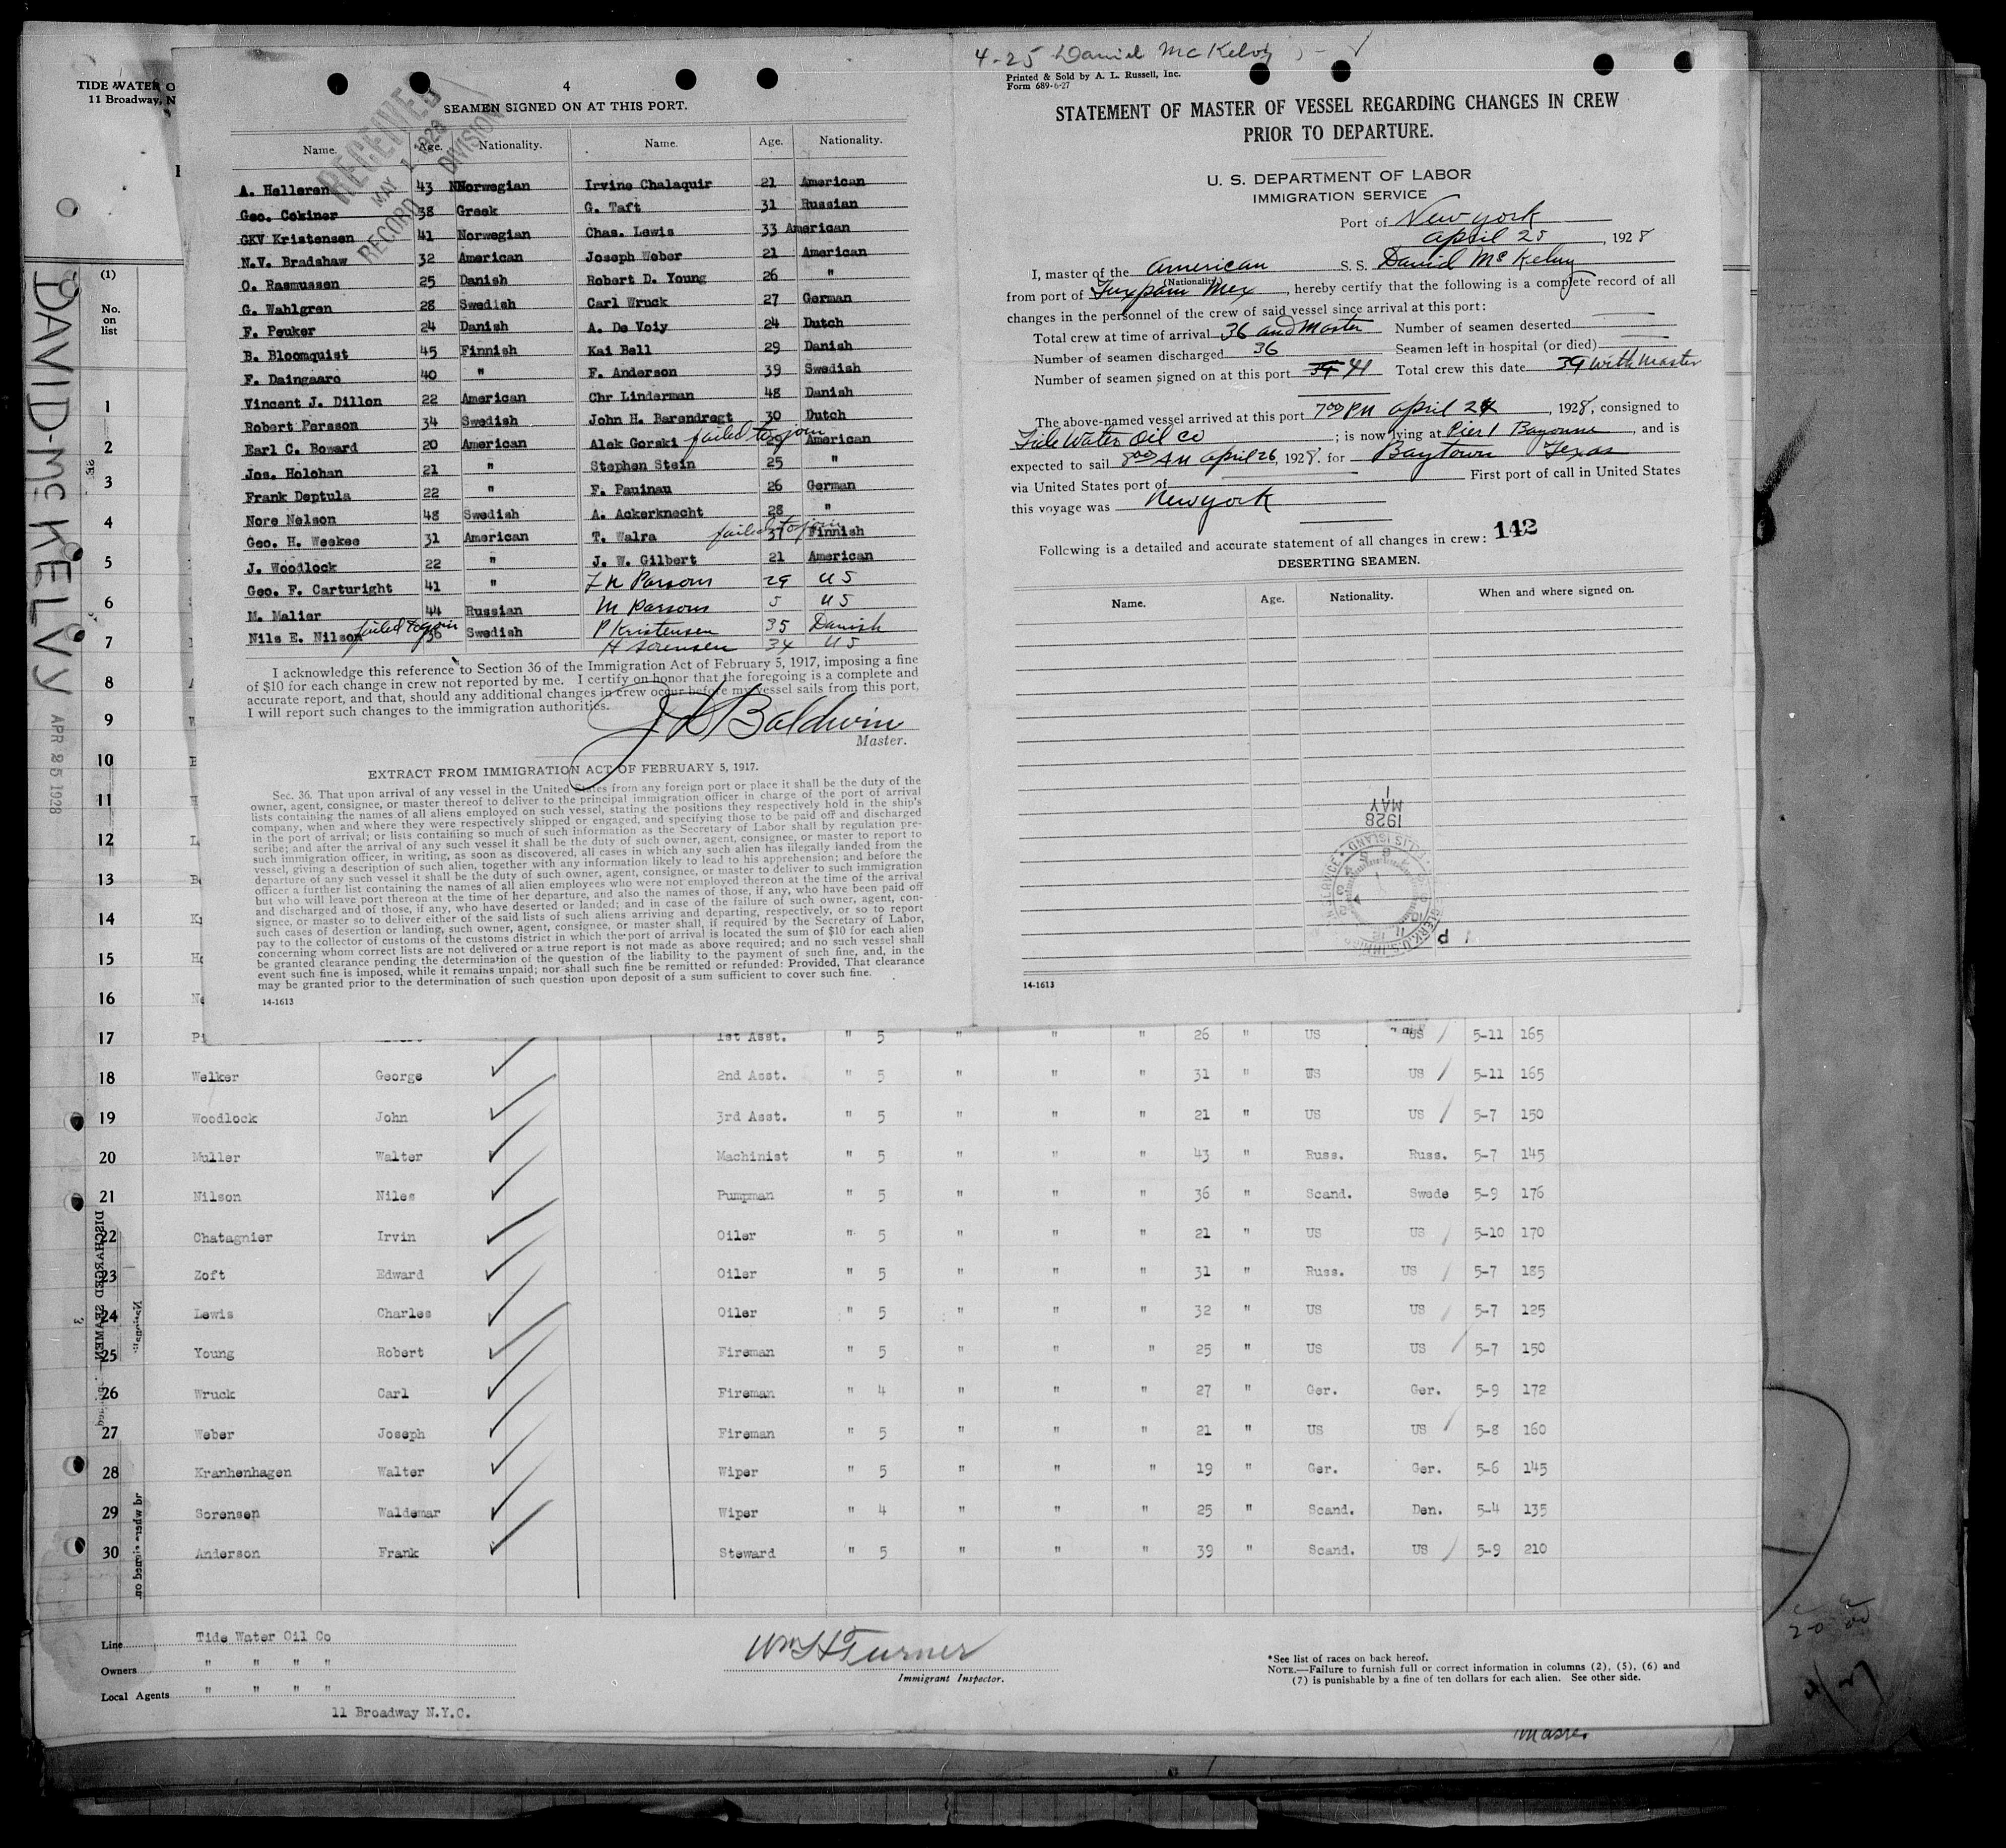 TIDE WATER O
11 Broadway, N
DAVID-Mc KELVY
APR 25 1928
(1)
No.
on
list
1
2
3
4
5
6
7
8
9
10
11
12
13
14
15
16
4
SEAMEN SIGNED ON AT THIS PORT.
RECEIVED
MAY 1 1928
RECORD DIVISION
Name. Age. Nationality. Name. Age. Nationality.
A. Helleren 43 Norwegian Irvine Chalaquir 21 American
Geo. Cokiner 38 Greek G. Taft 31 Russian
GKV Kristensen 41 Norwegian Chas. Lewis 33 American
N.V. Bradshaw 32 American Joseph Weber 21 American
O. Rasmussen 25 Danish Robert D. Young 26 "
G. Wahlgren 28 Swedish Carl Wruck 27 German
F. Peuker 24 Danish A. De Voiy 24 Dutch
B. Bloomquist 45 Finnish Kai Bell 29 Danish
F. Daingaaro 40 " F. Anderson 39 Swedish
Vincent J. Dillon 22 American Chr Linderman 48 Danish
Robert Persson 34 Swedish John H. Barendregt 30 Dutch
Earl C. Boward 20 American Alek Gorski failed to join American
Jos. Holohan 21 " Stephen Stein 25 "
Frank Deptula 22 " F. Pauinau 26 German
Nore Nelson 48 Swedish A. Ackerknecht 28 "
Geo. H. Weekes 31 American T. Walra failed to join 37 Finnish
J. Woodlock 22 " J. W. Gilbert 21 American
Geo. F. Carturight 41 " F N Parsons 29 U S
M. Malier 44 Russian M Parsons 5 U S
Nils E. Nilson failed to join 36 Swedish P Kristensen 35 Danish
H Sorensen 34 U S
I acknowledge this reference to Section 36 of the Immigration Act of February 5, 1917, imposing a fine
of $10 for each change in crew not reported by me. I certify on honor that the foregoing is a complete and
accurate report, and that, should any additional changes in crew occur before my vessel sails from this port,
I will report such changes to the immigration authorities.
Baldwin
Master.
EXTRACT FROM IMMIGRATION ACT OF FEBRUARY 5, 1917.
Sec. 36. That upon arrival of any vessel in the United States from any foreign port or place it shall be the duty of the
owner, agent, consignee, or master thereof to deliver to the principal immigration officer in charge of the port of arrival
lists containing the names of all aliens employed on such vessel, stating the positions they respectively hold in the ship's
company, when and where they were respectively shipped or engaged, and specifying those to be paid off and discharged
in the port of arrival; or lists containing so much of such information as the Secretary of Labor shall by regulation pre-
scribe; and after the arrival of any such vessel it shall be the duty of such owner, agent, consignee, or master to report to
such immigration officer, in writing, as soon as discovered, all cases in which any such alien has illegally landed from the
vessel, giving a description of such alien, together with any information likely to lead to his apprehension; and before the
departure of any such vessel it shall be the duty of such owner, agent, consignee, or master to deliver to such immigration
officer a further list containing the names of all alien employees who were not employed thereon at the time of the arrival
but who will leave port thereon at the time of her departure, and also the names of those, if any, who have been paid off
and discharged and of those, if any, who have deserted or landed; and in case of the failure of such owner, agent, con-
signee, or master so to deliver either of the said lists of such aliens arriving and departing, respectively, or so to report
such cases of desertion or landing, such owner, agent, consignee, or master shall, if required by the Secretary of Labor,
pay to the collector of customs of the customs district in which the port of arrival is located the sum of $10 for each alien
concerning whom correct lists are not delivered or a true report is not made as above required; and no such vessel shall
be granted clearance pending the determination of the question of the liability to the payment of such fine, and, in the
event such fine is imposed, while it remains unpaid; nor shall such fine be remitted or refunded: Provided, That clearance
may be granted prior to the determination of such question upon deposit of a sum sufficient to cover such fine.
14-1613
4-25 Daniel McKelvy
Printed & Sold by A. L. Russell, Inc.
Form 689-6-27
STATEMENT OF MASTER OF VESSEL REGARDING CHANGES IN CREW
PRIOR TO DEPARTURE.
U. S. DEPARTMENT OF LABOR
IMMIGRATION SERVICE
Port of New York
April 25, 1928
I, master of the American S. S. David McKelvy
(Nationality)
from port of Tuxpam Mex, hereby certify that the following is a complete record of all
changes in the personnel of the crew of said vessel since arrival at this port:
Total crew at time of arrival 36 and Master Number of seamen deserted
Number of seamen discharged 36 Seamen left in hospital (or died)
Number of seamen signed on at this port 39 41 Total crew this date 39 with Master
The above-named vessel arrived at this port 7 00 PM April 24, 1928, consigned to
Tide Water Oil Co; is now lying at Pier 1 Bayonne, and is
expected to sail 8 00 AM April 26, 1928. for Baytown Texas
via United States port of First port of call in United States
this voyage was New York
142
Following is a detailed and accurate statement of all changes in crew:
DESERTING SEAMEN.
Name. Age. Nationality. When and where signed on.
1928
MAY
1
ELLIS ISLAND
14-1613
17 1st Asst. " 5 " " " 26 " US US 5-11 165
18 Welker George 2nd Asst. " 5 " " " 31 " US US 5-11 165
19 Woodlock John 3rd Asst. " 5 " " " 21 " US US 5-7 150
20 Muller Walter Machinist " 5 " " " 43 " Russ. Russ. 5-7 145
21 Nilson Niles Pumpman " 5 " " " 36 " Scand. Swede 5-9 176
22 Chatagnier Irvin Oiler " 5 " " " 21 " US US 5-10 170
23 Zoft Edward Oiler " 5 " " " 31 " Russ. US 5-7 185
24 Lewis Charles Oiler " 5 " " " 32 " US US 5-7 125
25 Young Robert Fireman " 5 " " " 25 " US US 5-7 150
26 Wruck Carl Fireman " 4 " " " 27 " Ger. Ger. 5-9 172
27 Weber Joseph Fireman " 5 " " " 21 " US US 5-8 160
28 Kranhenhagen Walter Wiper " 5 " " " 19 " Ger. Ger. 5-6 145
29 Sorensen Waldemar Wiper " 4 " " " 25 " Scand. Den. 5-4 135
30 Anderson Frank Steward " 5 " " " 39 " Scand. US 5-9 210
DISCHARGED SEAMEN
3
Nationality.
Line Tide Water Oil Co
Owners " " " "
Local Agents " " " "
11 Broadway N.Y.C.
Wm H Turner
Immigrant Inspector.
*See list of races on back hereof.
NOTE.—Failure to furnish full or correct information in columns (2), (5), (6) and
(7) is punishable by a fine of ten dollars for each alien. See other side.
Master